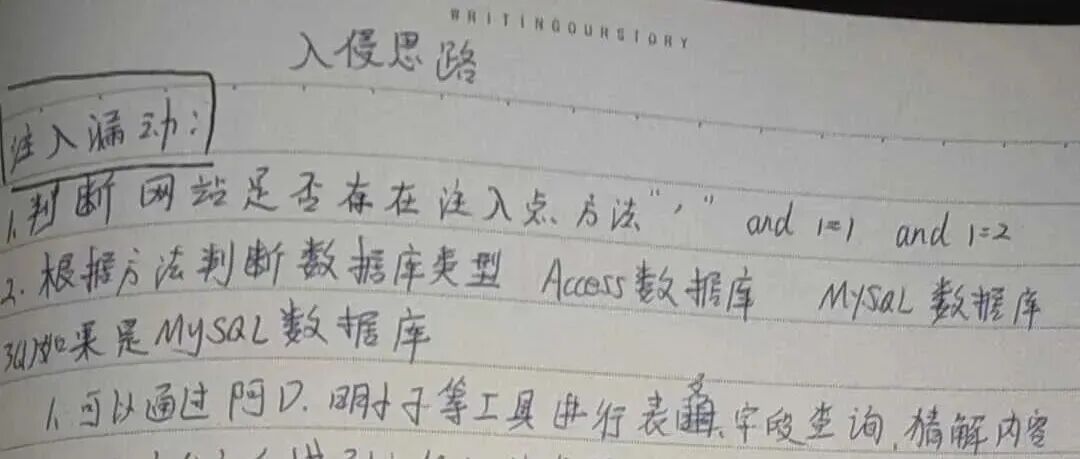 WRITINGOURSTORY
入侵思路
注入漏动:
1.判断网站是否存在注入点.方法“ , ” and 1=1 and 1=2
2.根据方法判断数据库类型 Access数据库 MYSQL数据库
3(1)如果是MySQL数据库
1.可以通过阿D.明小子等工具进行表名.字段查询,猜解内容